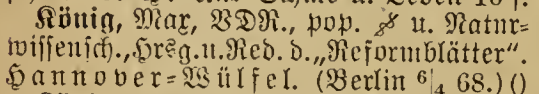 König, Max, BDR., pop. u. Natur=
wissensch., Hrsg. u. Red. d. „Reformblätter“.
Hannover=Wülfel. (Berlin 6/4 68.) ()